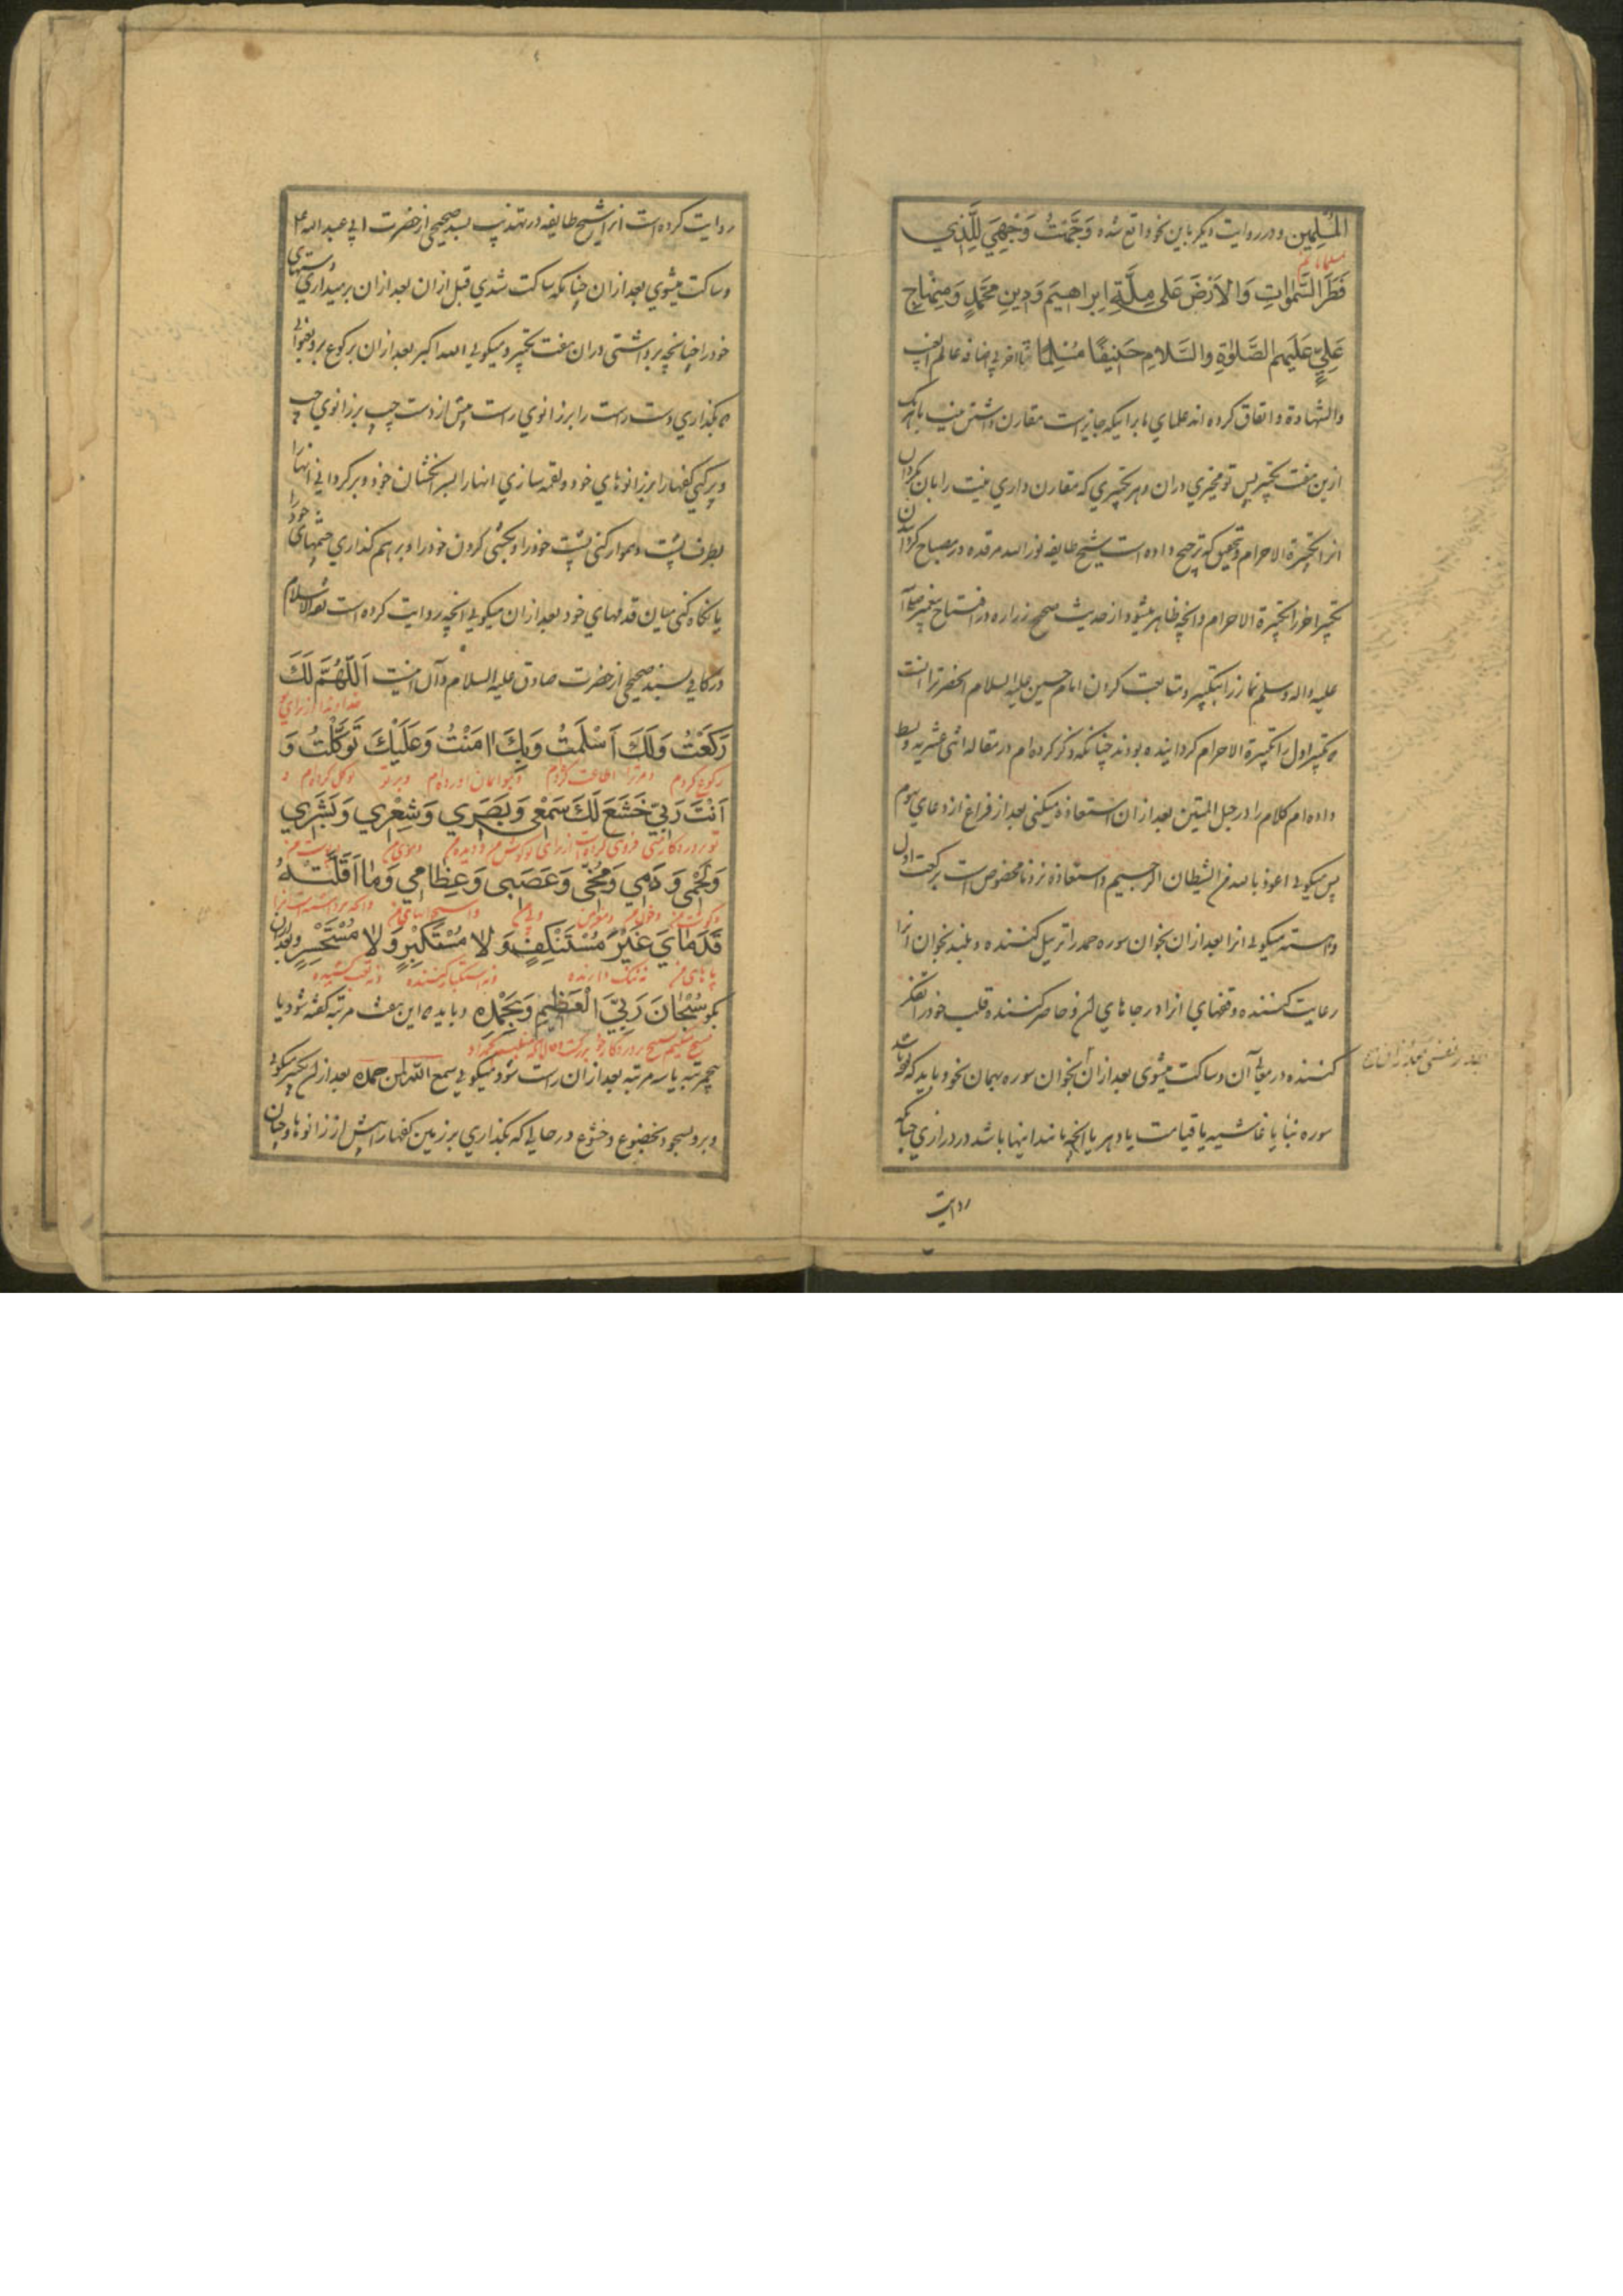 المُسْلِمین و در روایت دیکر باین نحو واقع شده وَجَّهْتُ وَجْهِيَ لِلَّذِي
مسلمانانم
فَطَرَ السَّمٰواتِ وَالْاَرْضَ عَلىٰ مِلَّةِ اِبراهیمَ وَدِینِ مُحَمَّدٍ وَمِنْهٰاجِ
عَلِيٍّ عَلَیهِم الصَّلوٰةِ والسَّلامِ حَنِیفًا مُسْلِمًا تا اخر بی اضافه عالم الغیب
والشهادة و اتفاق کرده اند علمای ما برانیکه جایز است مقارن داشتن نیت باهریک
ازین هفت تکبیر پس تو مخیری دران و هر تکبیری که مقارن داری نیت را بان بکردان
انرا تکبیرة الاحرام و بتحقیق که ترجیح داده است شیخ طایفه نور الله مرقده در مصباح کردآن
تکبیر اخر را تکبیرة الاحرام و انچه ظاهر میشود از حدیث صحیح زراره در افتتاح پیغمبر صلی الله
علیه واله وسلم نماز را بتکبیر و متابعت کردن امام حسین علیه السلام انحضرت را انست
که تکبیر اول را تکبیرة الاحرام کردانیده بودند چنانکه ذکر کرده ام در مقاله اثنی عشریه و بسط
داده ام کلام را در حبل المتین بعد از ان استعاذه میکنی بعد از فراغ از دعای سوم
پس میکوئی اعوذ بالله من الشیطان الرجیم و استعاذه نزد ما مخصوص است برکعت اول
و اهسته میکوئی انرا بعد ازان بخوان سوره حمد را ترتیل کننده و بلند بخوان انرا
رعایت کننده وقفهای انرا در جاهای ان و حاضر کننده قلب خود را تفکر
کننده در معانی آن و ساکت میشوی بعد ازان بخوان سوره بهمان نحو و باید که بوده باشد
بقدر نفسی بعد از ان
سوره نبا یا غاشیه یا قیامت یا دهر یا انچه مانند اینها باشد در درازی چنانکه
روایت
روایت کرده است انرا شیخ طایفه در تهذیب بسند صحیحی از حضرت ابی عبدالله ع
و ساکت میشوی بعد ازان چنانکه ساکت شدی قبل ازان بعد ازان بر میداری دستهای
خود را چنانچه برداشتی دران هفت تکبیر و میکوئی الله اکبر بعد ازان برکوع برو بعنوانی
که بکذاری دست راست را بر زانوی راست پیش از دست چپ بر زانوی چپ
و پر کنی کفها را بزانوهای خود و لقمه سازی انها را بسر انکشتان خود و بر کردانی زانها را
بطرف پشت و هموار کنی پشت خود را و بکشی کردن خود را و بر هم کذاری چشمهای خود را
یا نکاه کنی میان قدمهای خود بعد ازان میکوئی انچه روایت کرده است ثقة الاسلام
در کافی بسند صحیحی از حضرت صادق علیه السلام و آن اینست اَللّٰهُمَّ لَكَ
خداوندا از برای تو
رَکَعْتُ وَلَكَ اَسْلَمْتُ وَبِكَ اٰمَنْتُ وَعَلَیْكَ تَوَکَّلْتُ وَ
رکوع کردم و مرترا اطاعت کردم و بتو ایمان اورده ام و برتو توکل کرده ام و
اَنْتَ رَبّی خَشَعَ لَكَ سَمْعی وَبَصَري وَشِعْري وَبَشَري
تو پروردکار منی فروتنی کرده است از برای تو کوش من و دیده من و موی من و پوست من
وَلَحْمی وَدَمي وَمُخّی وَعَصَبی وَعِظامي وَمٰا اَقَلَّتْهُ
و کوشت من و خون من و مغز من و پی من و استخوانهای من و انچه برداشته است انرا
قَدَمٰايَ غَیْرَ مُسْتَنْکِفٍ وَلا مُسْتَکْبِرٍ وَلا مُسْتَحْسِرٍ و بعد ازان
پاهای من نه ننک دارنده و نه استکبار کننده و نه تعب کشیده
بکو سُبْحٰانَ رَبِّيَ الْعَظِیمِ وَبِحَمْدِه و باید که این هفت مرتبه کفته شود یا
پنج مرتبه یا سه مرتبه بعد ازان راست شو و میکوئی سمع الله لمن حمده بعد ازان تکبیر میکوئی
و برو بسجود بخضوع و خشوع در حالی که بکذاری بر زمین کفها را پیش از زانوها و چنان